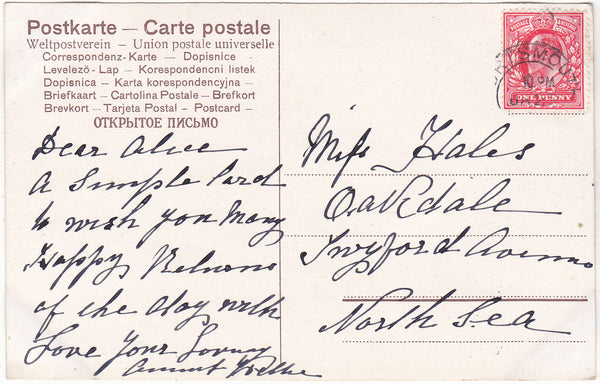 Postkarte — Carte postale
Weltpostverein — Union postale universelle
Correspondenz-Karte — Dopisnice
Levelező - Lap — Korespondencni listek
Dopisnica — Karta korespondencyjna —
Briefkaart — Cartolina Postale — Brefkort
Brevkort — Tarjeta Postal — Postcard —
ОТКРЫТОЕ ПИСЬМО
Dear Alice
A Simple Card
to wish you Many
Happy Returns
of the day with
Love Your Loving
Aunt
Miss Hales
Oakdale
Twyford Avenue
North Sea
PORTSMOUTH
ONE PENNY